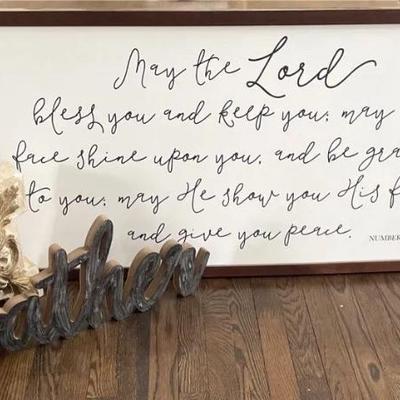 May the Lord
bless you and keep you; may
face shine upon you, and be gra
to you; may He show you His f
and give you peace.
NUMBER
ather